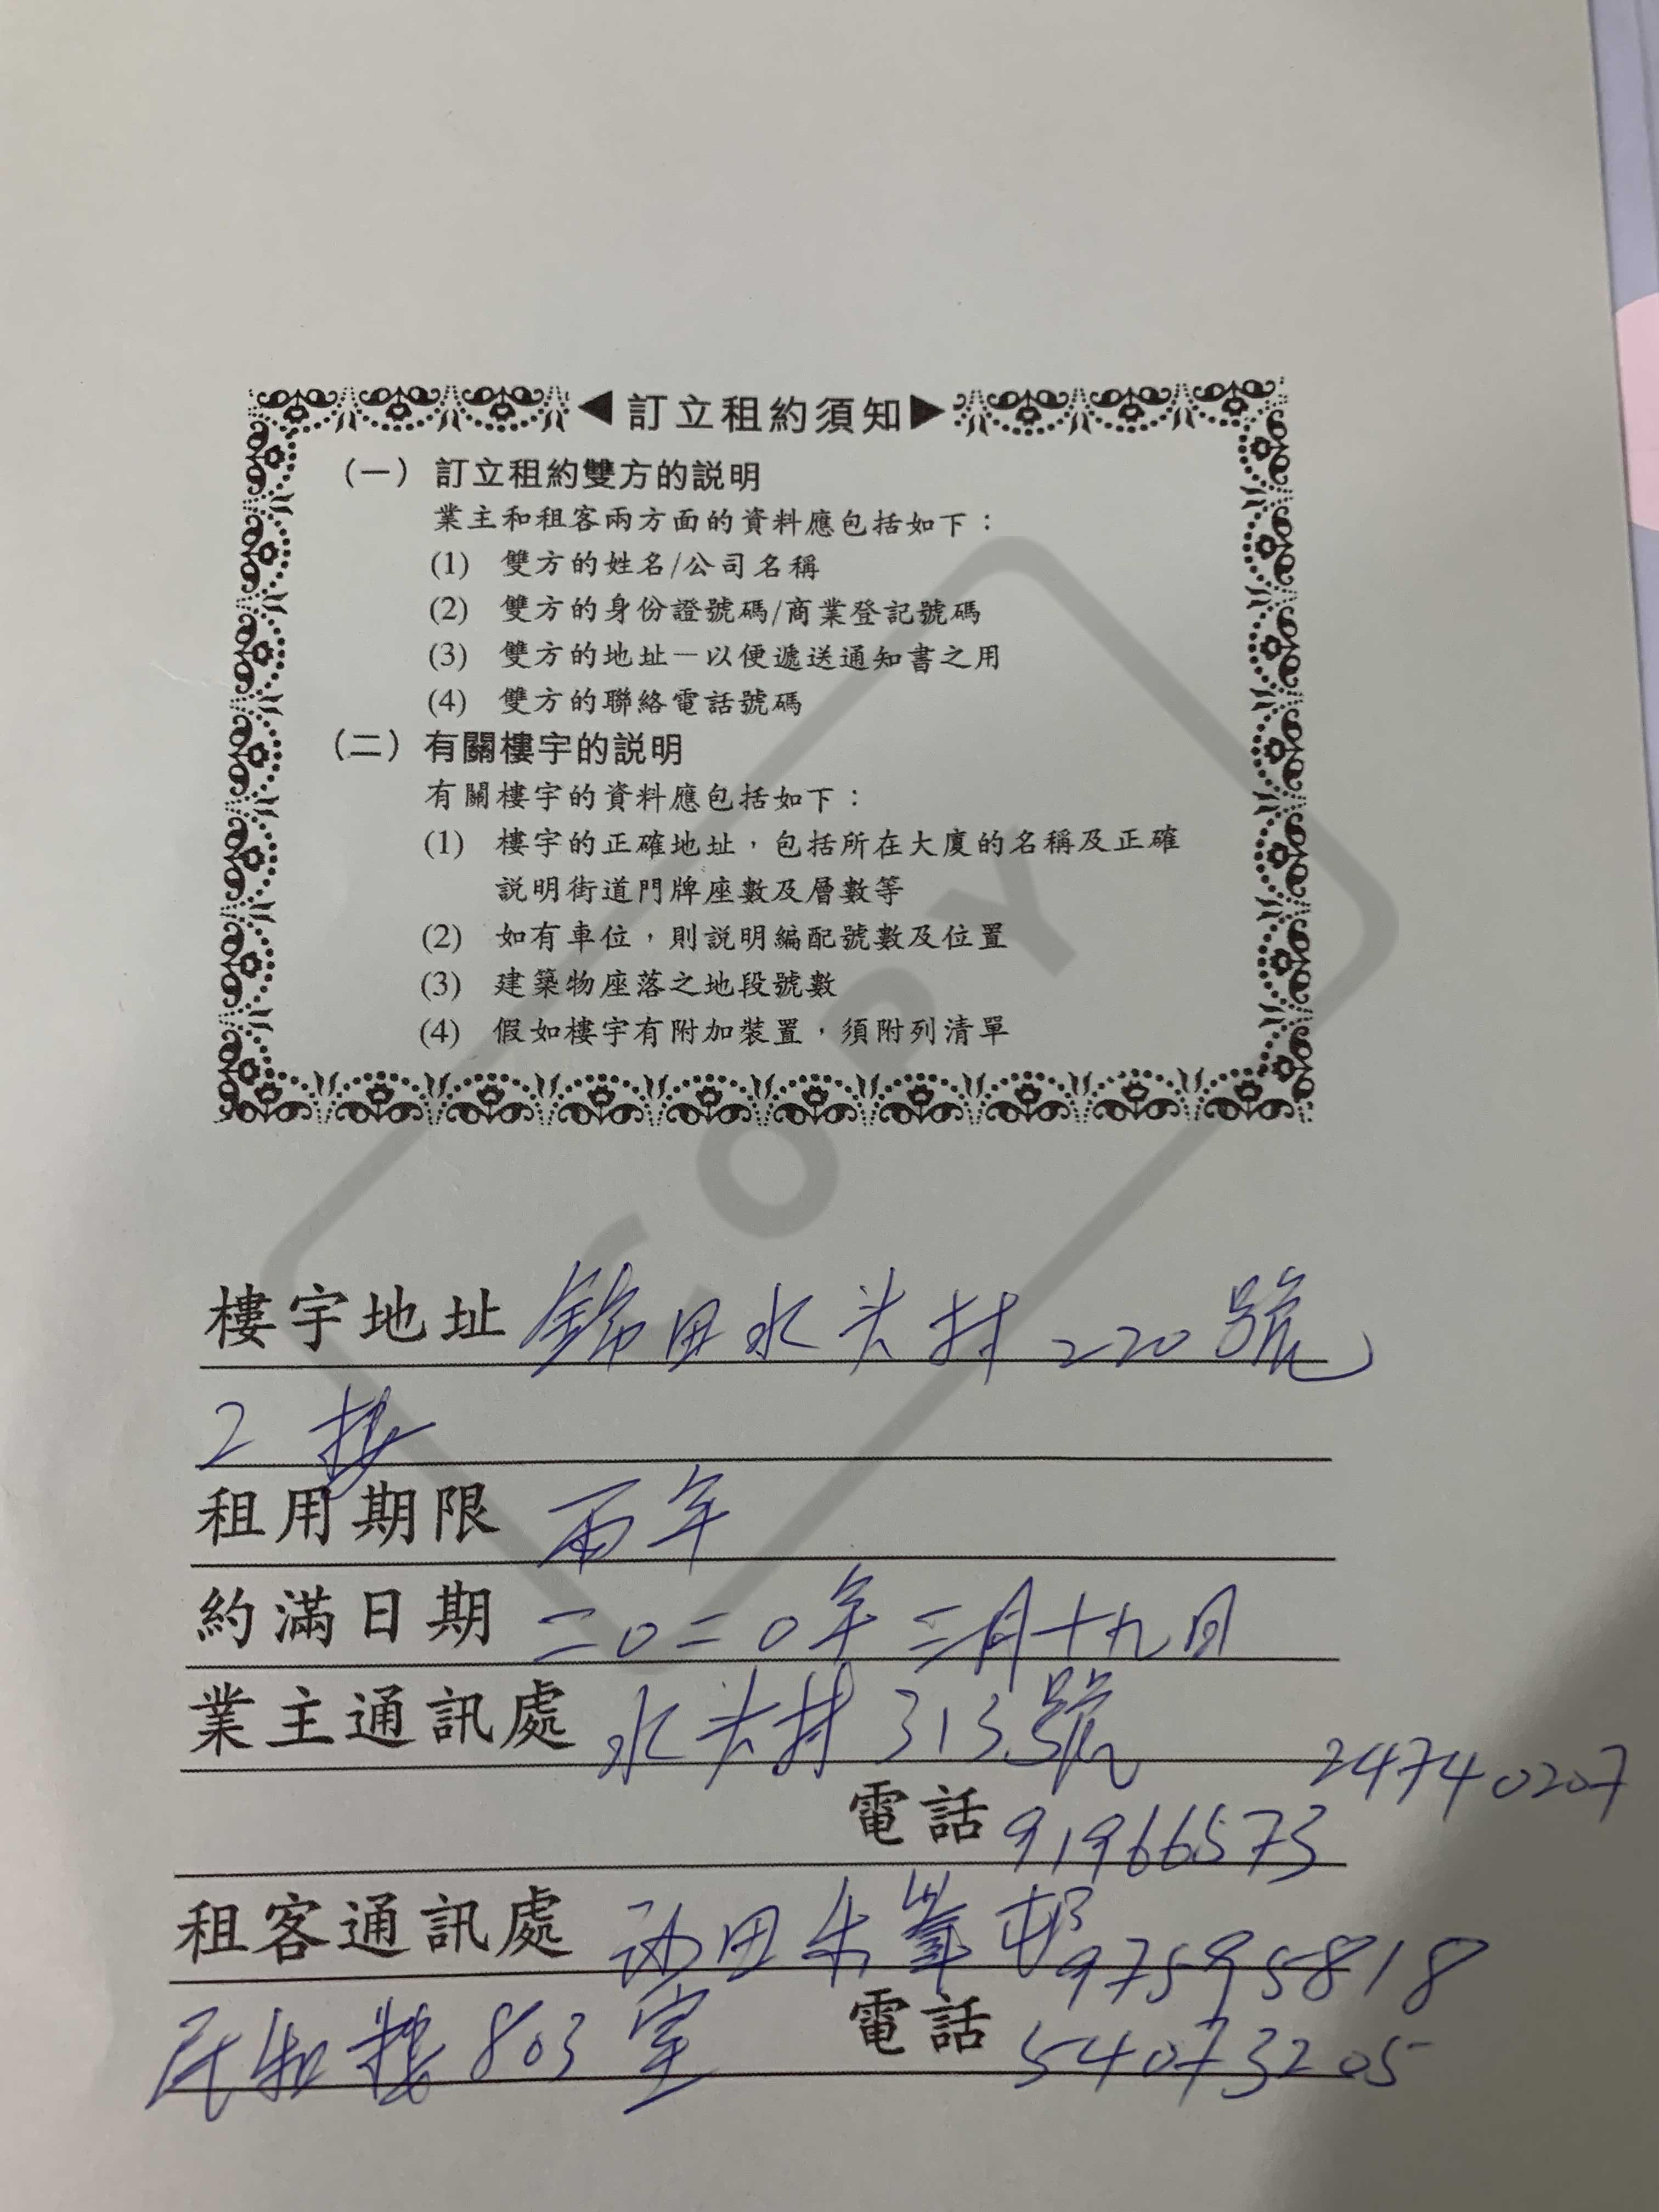 訂立租約須知
（一）訂立租約雙方的説明
業主和租客兩方面的資料應包括如下：
(1) 雙方的姓名/公司名稱
(2) 雙方的身份證號碼/商業登記號碼
(3) 雙方的地址－以便遞送通知書之用
(4) 雙方的聯絡電話號碼
（二）有關樓宇的説明
有關樓宇的資料應包括如下：
(1) 樓宇的正確地址，包括所在大廈的名稱及正確
説明街道門牌座數及層數等
(2) 如有車位，則説明編配號數及位置
(3) 建築物座落之地段號數
(4) 假如樓宇有附加裝置，須附列清單
COPY
樓宇地址 錦田水头村 220 號
2 楼
租用期限 兩年
約滿日期 二0二0年二月十九日
業主通訊處 水头村 313號
24740207
電話 91966573
租客通訊處 田 邨 97595818
民和樓 803 室 電話 54073205